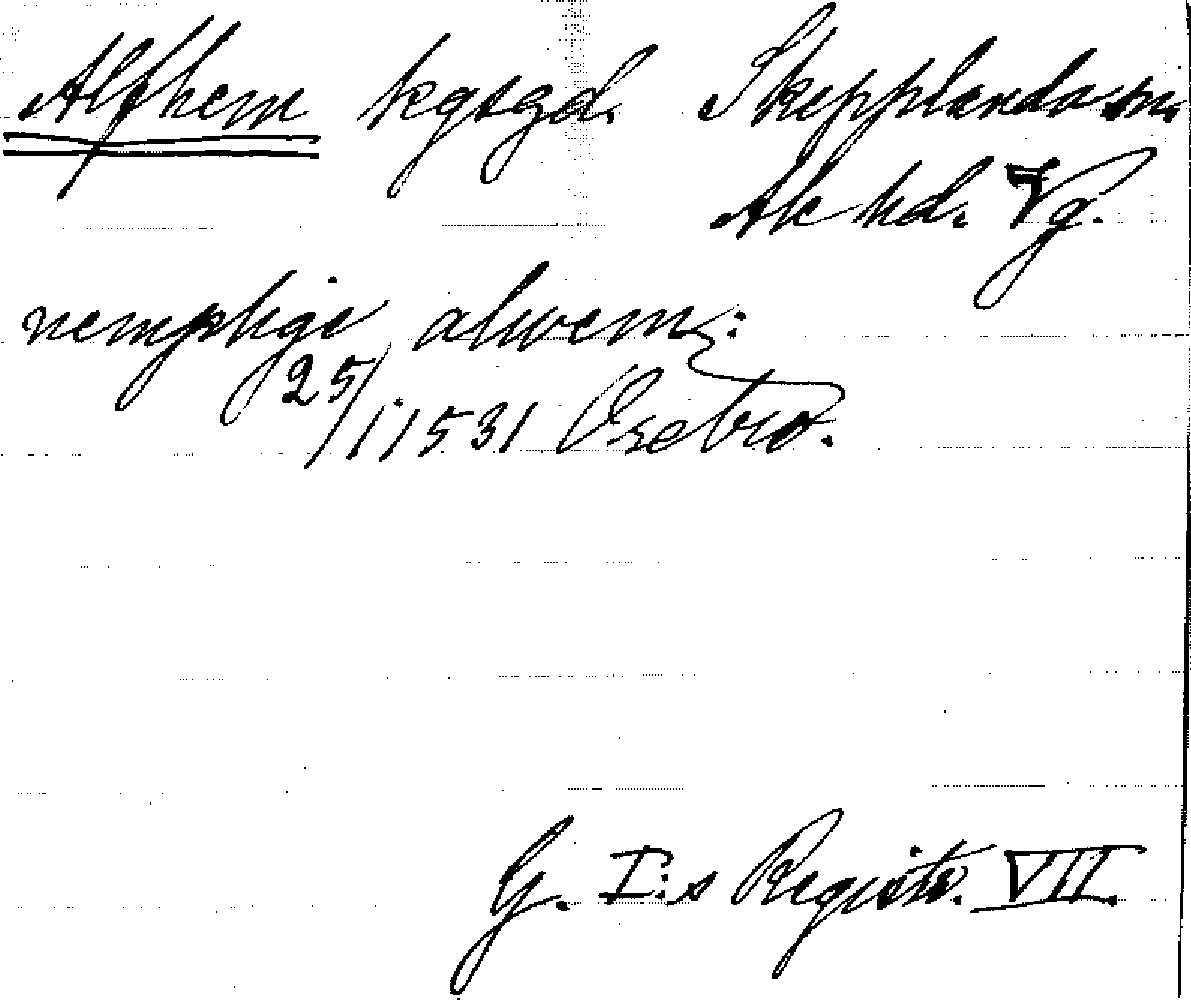 Alfhem kgsgd. Skepplanda sn.
Ale hd. Vg.
nemplige alwem:
25/1 1531 Örebro.
G. I:s Registr. VII.